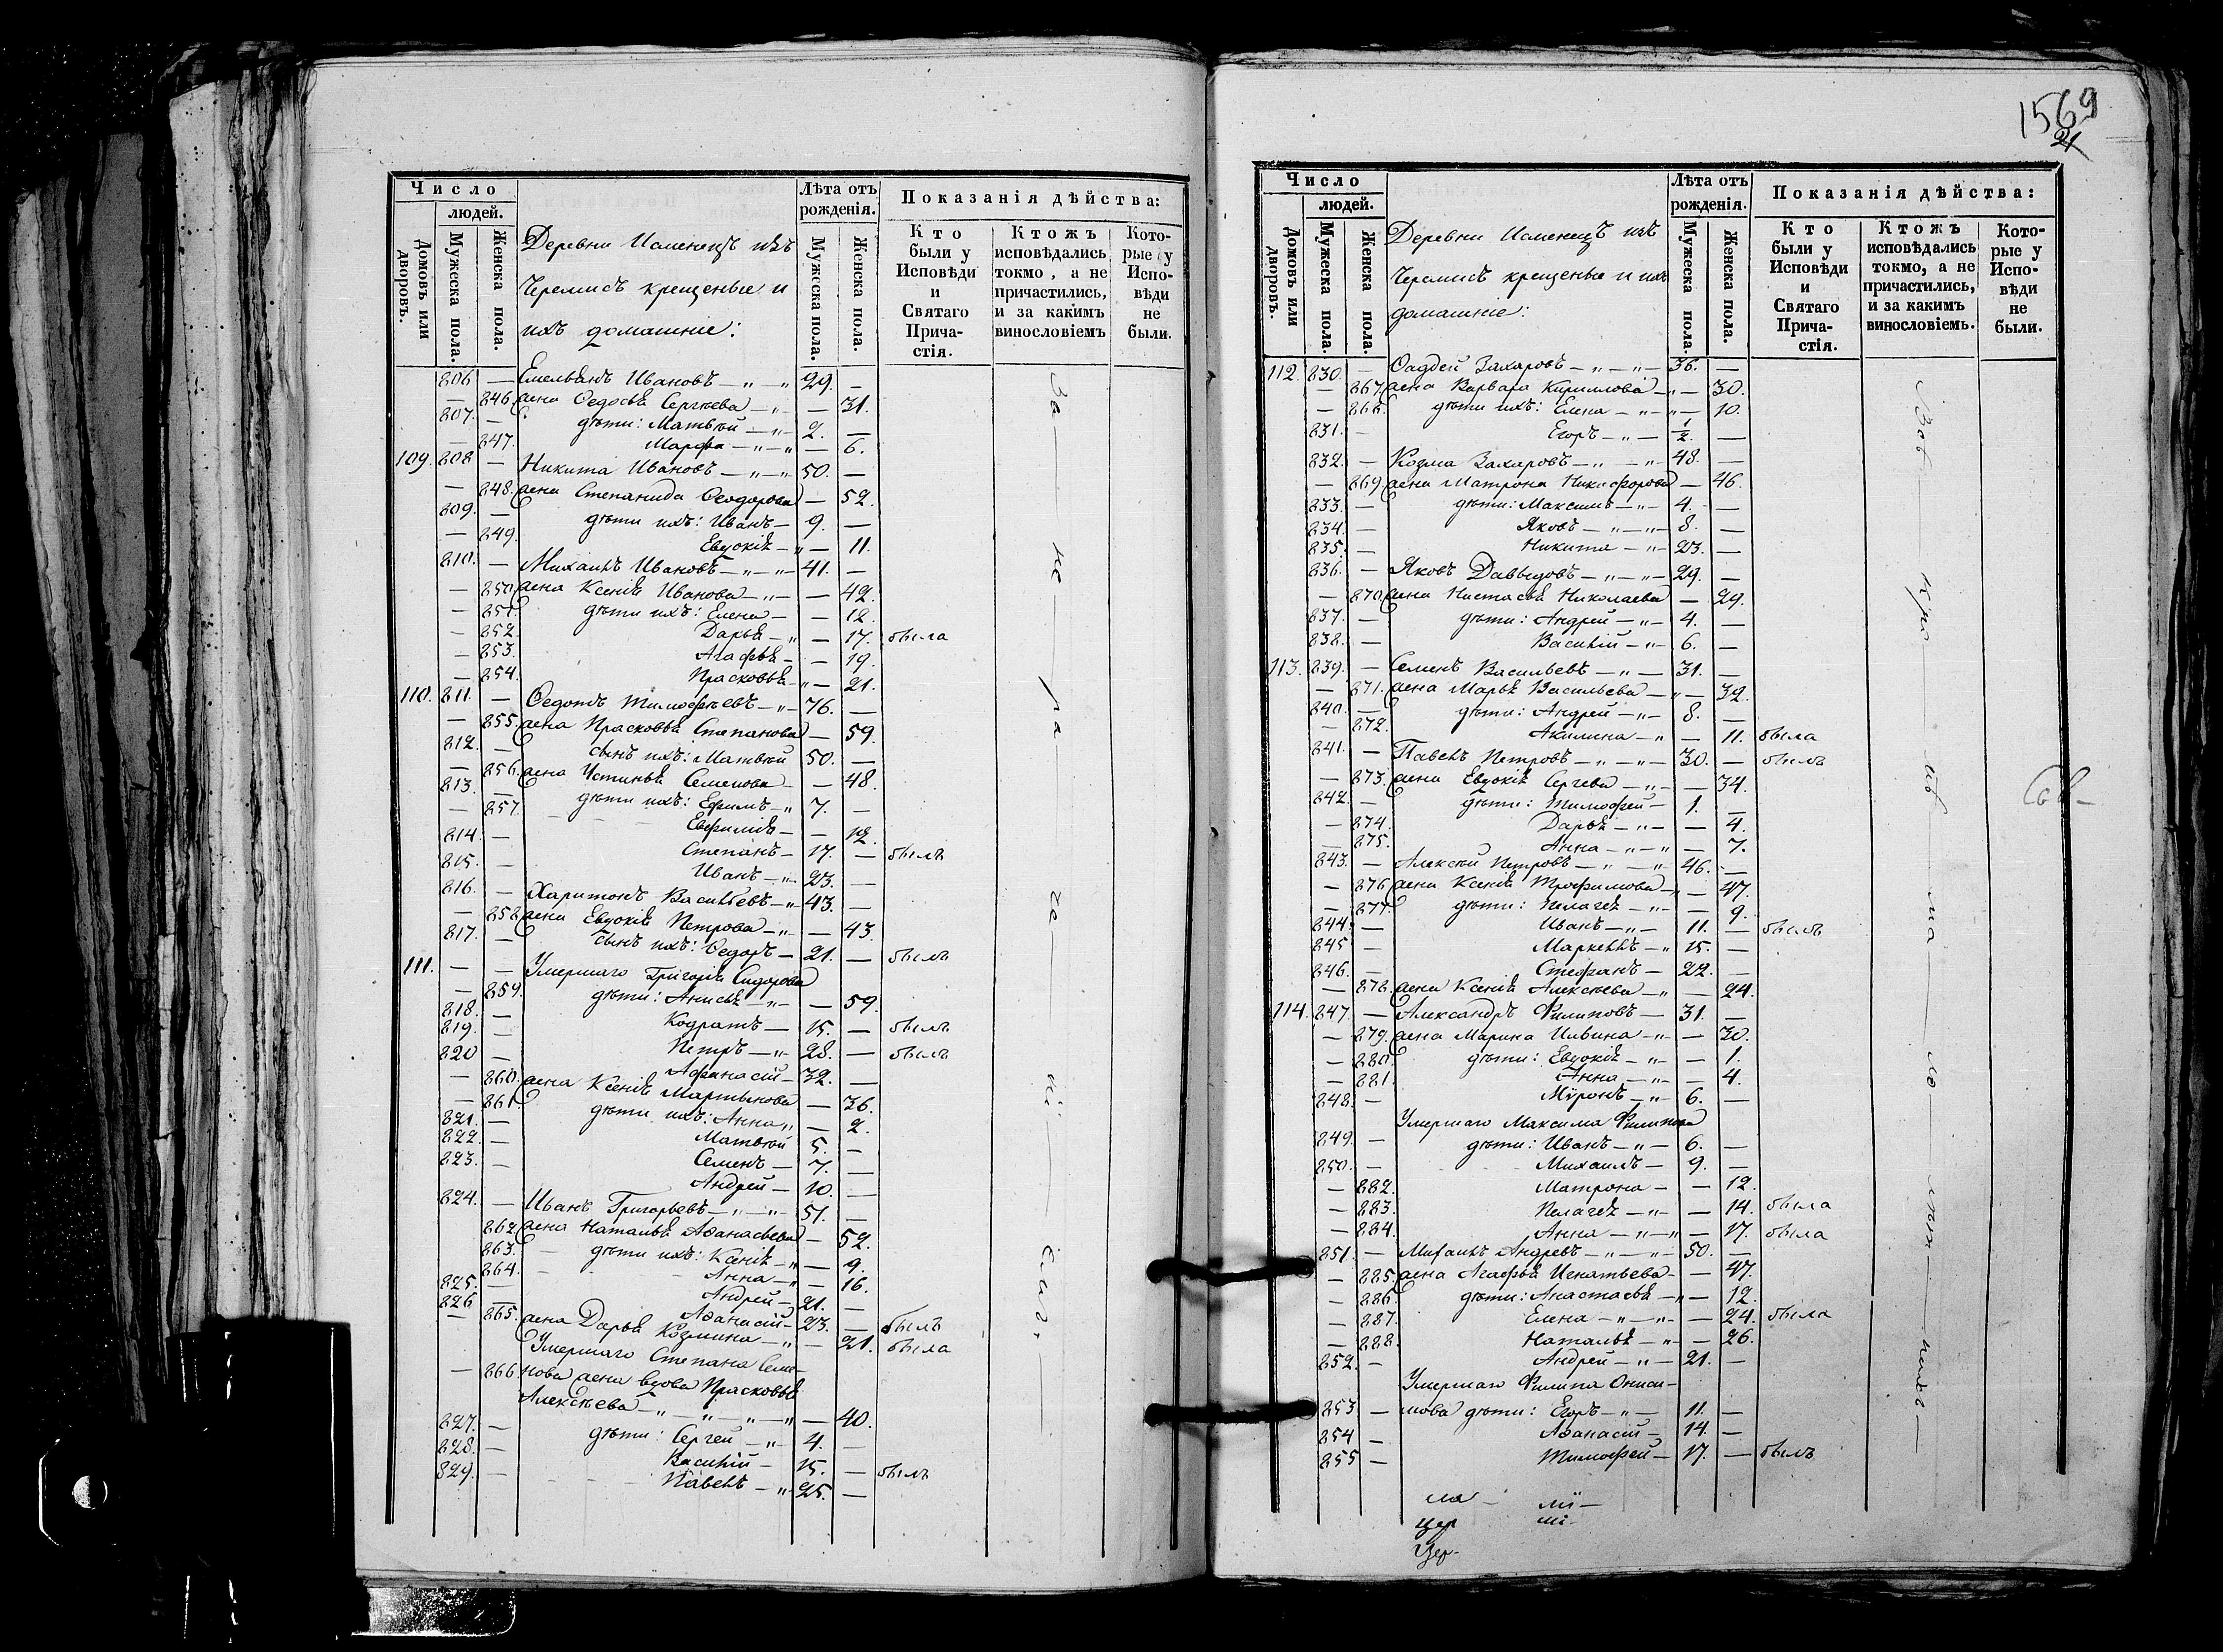 1569
21
Число
людей.
Домовъ или дворовъ.
Мужеска пола.
Женска пола.
Деревни Исменецъ изъ
Черемисъ крещеные и
ихъ домашніе:
Лѣта отъ рожденія.
Мужеска пола.
Женска пола.
Показанія дѣйства:
Кто были у Исповѣди и Святаго Причастія.
Ктожъ исповѣдались токмо, а не причастились, и за какимъ винословіемъ
Которые у Исповѣди не были.
206 — Емельянъ Ивановъ — 29. —
— 246. жена Федосья Сергѣева — 31.
207. — дѣти: Матвѣй — 2. —
— 247. Марфа — 6.
109. 208 — Никита Ивановъ — 50. —
— 248. жена Степанида Феодорова — 52.
209. — дѣти ихъ: Иванъ — 9. —
— 249. Евдокія — 11.
210. — Михаилъ Ивановъ — 41. —
— 250. жена Ксенія Иванова — 42.
— 251. дѣти ихъ: Елена — 12.
— 252. Дарья — 17. была
— 253. Агафья — 19.
— 254. Прасковья — 21.
110. 211. — Федотъ Тимофѣевъ — 76. —
— 255. жена Прасковья Степанова — 59.
212. — сынъ ихъ: Матвѣй 50. —
— 256. жена Устинья Семенова — 48.
213. — дѣти ихъ: Ефимъ — 7. —
— 257. Евфимія — 12.
214. — Степанъ — 17. — былъ
215. — Иванъ — 23. —
216. — Харитонъ Васильевъ — 43. —
— 258. жена Евдокія Петрова — 43.
217. — сынъ ихъ: Федоръ — 21. — былъ
111. — — Умершаго Григорія Сидорова
— 259. дѣти: Анисья — 59.
218. — Кодратъ — 15. — былъ
219. — Петръ — 28. — былъ
220 — Афанасій — 32. —
— 260. жена Ксенія Мартынова — 36.
— 261. дѣти ихъ: Анна — 2.
221. — Матвѣй 5. —
222. — Семенъ — 7. —
223. — Андрей — 10. —
224. — Иванъ Григорьевъ — 51. —
262. жена Наталья Афанасьева — 52.
263. дѣти ихъ: Ксенія — 9.
264. Анна — 16.
225. — Андрей — 21. —
226 — Афанасій — 23. — былъ
— 265. жена Дарья Козмина — 21. была
Умершаго Степана Семе-
— 266. нова жена вдова Прасковья
Алексѣева — 40.
227. — дѣти: Сергей — 4. —
228. — Василій — 15. — былъ
229. — Павелъ — 25. —
За — не — ра — че — ні — емъ
Число
людей.
Домовъ или дворовъ.
Мужеска пола.
Женска пола.
Деревни Исменецъ изъ
Черемисъ крещеные и ихъ
домашніе:
Лѣта отъ рожденія.
Мужеска пола.
Женска пола.
Показанія дѣйства:
Кто были у Исповѣди и Святаго Причастія.
Ктожъ исповѣдались токмо, а не причастились, и за какимъ винословіемъ.
Которые у Исповѣди не были.
112. 230. — Фаддей Захаровъ — 36. —
— 267. жена Варвара Кириллова — 30.
— 268. дѣти ихъ: Елена — 10.
231. — Егоръ — 1/2. —
232. — Козма Захаровъ — 48. —
— 269. жена Матрона Никифорова — 46.
233. — дѣти: Максимъ — 4. —
234. — Яковъ — 8. —
235. — Никита — 23. —
236. — Яковъ Давыдовъ — 29. —
— 270. жена Настасья Николаева — 29.
237. — дѣти: Андрей — 4. —
238. — Василій — 6. —
113. 239. — Семенъ Васильевъ — 31. —
— 271. жена Марья Васильева — 32.
240. — дѣти: Андрей — 8. —
— 272. Акилина — 11. была
241. — Павелъ Петровъ — 30. — былъ
— 273. жена Евдокія Сергева — 34.
242. — дѣти: Тимофей — 1. —
— 274. Дарья — 4.
— 275. Анна — 7.
243. — Алексѣй Петровъ — 46. —
— 276 жена Ксенія Трофимова — 47.
— 277. дѣти: Пелагея — 9.
244. — Иванъ — 11. — былъ
245 — Маркеллъ — 15. —
246. — Стефанъ — 22. —
— 278. жена Ксенія Алексѣева — 24.
114. 247. — Александръ Филиповъ — 31. —
— 279. жена Марина Ильина — 30.
— 280. дѣти: Евдокія — 1.
— 281. Анна — 4.
248. — Мѵронъ — 6. —
Умершаго Максима Филипова
249. — дѣти: Иванъ — 6. —
250. — Михаилъ — 9. —
— 282. Матрона — 12.
— 283. Пелагея — 14. была
— 284. Анна — 17. была
251. — Михаилъ Андревъ — 50. —
— 285. жена Агафья Игнатьева — 47.
— 286. дѣти: Анастасья — 12.
— 287. Елена — 24. была
— 288. Наталья — 26.
252. — Андрей — 21. —
Умершаго Филипа Ониси-
253 — мова дѣти: Егоръ — 11. —
254 — Афанасій — 14. —
255 — Тимофей — 17. — былъ